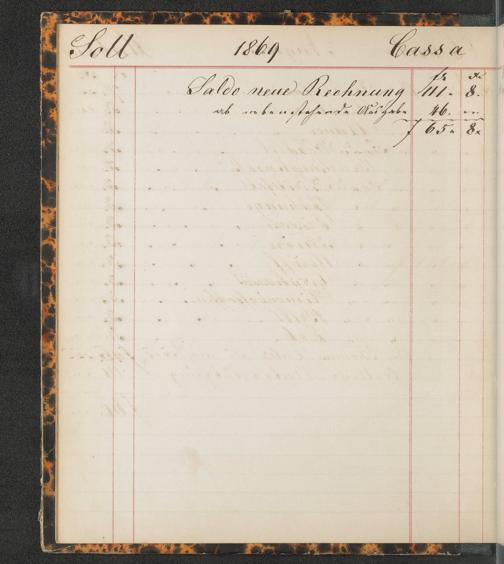 Soll 1869 Cassa
fl. x.
Saldo neue Rechnung 111. 8.
ab nebenstehende Ausgabe 46. —
65. 8.